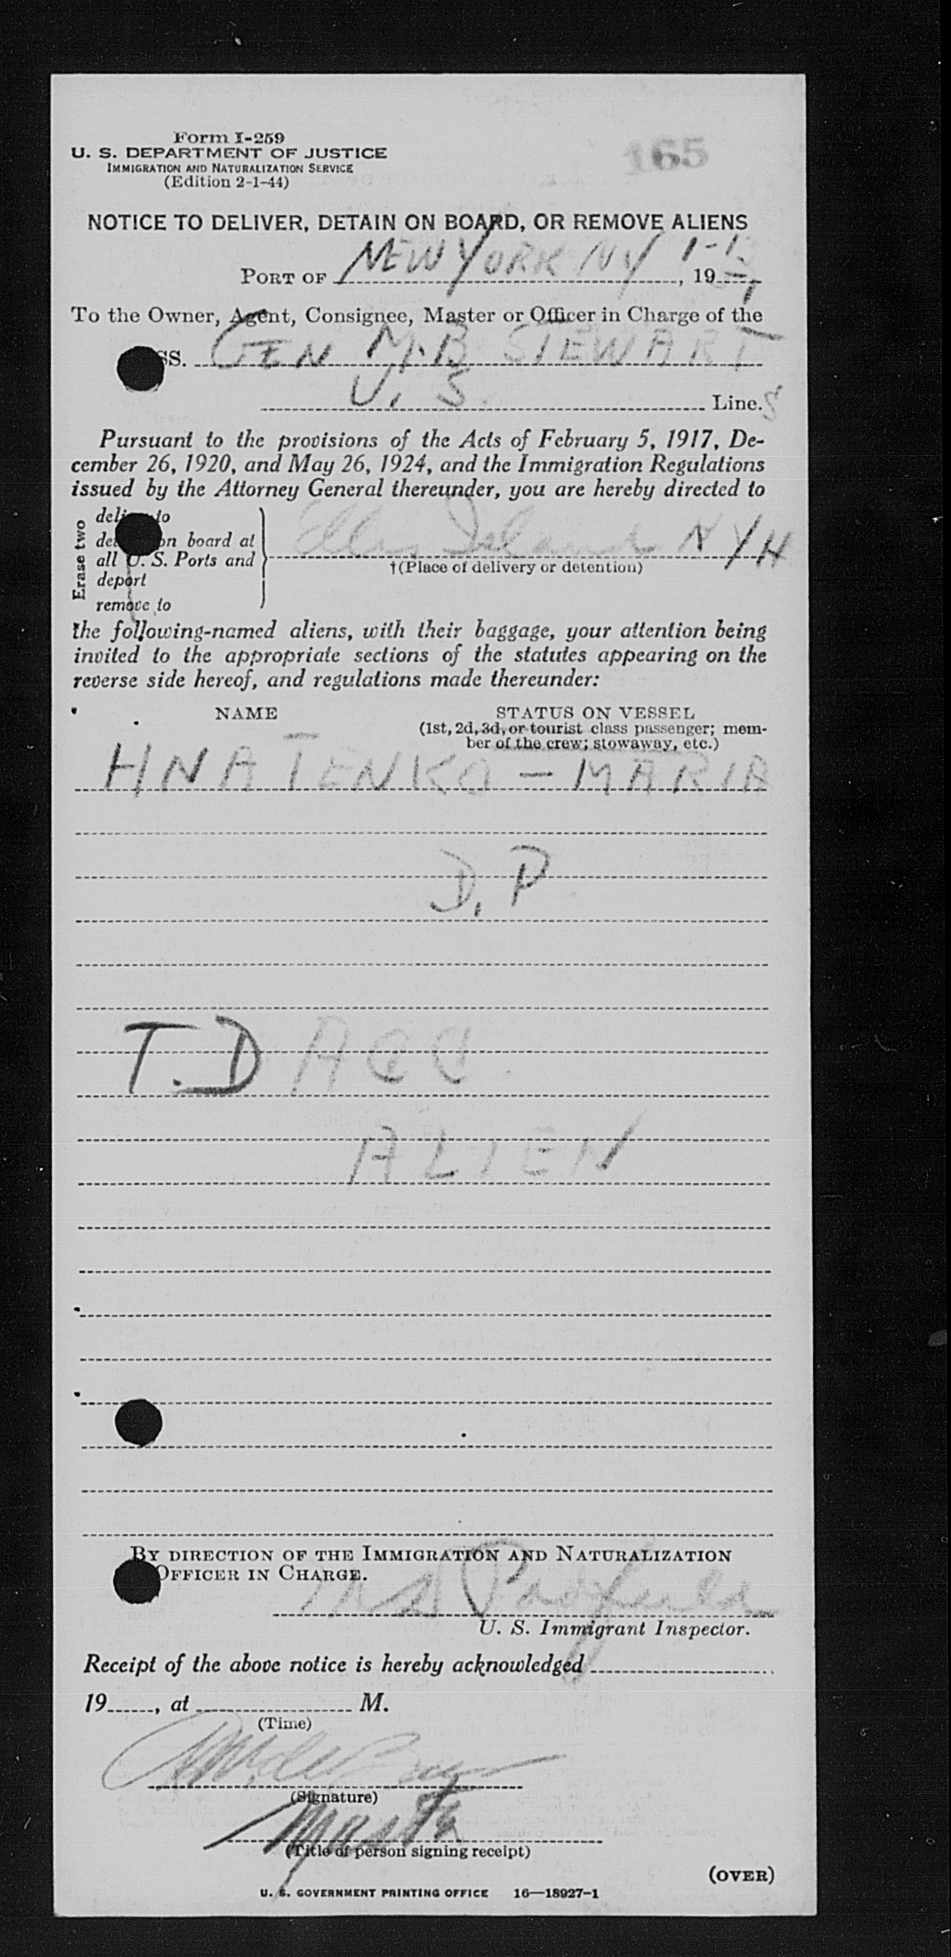 165
Form I-259
U. S. DEPARTMENT OF JUSTICE
IMMIGRATION AND NATURALIZATION SERVICE
(Edition 2-1-44)
NOTICE TO DELIVER, DETAIN ON BOARD, OR REMOVE ALIENS
PORT OF NEW YORK NY 1-1, 19
To the Owner, Agent, Consignee, Master or Officer in Charge of the
SS. GEN M.B STEWART
U. S. Line.
Pursuant to the provisions of the Acts of February 5, 1917, De-
cember 26, 1920, and May 26, 1924, and the Immigration Regulations
issued by the Attorney General thereunder, you are hereby directed to
Erase two
deliver to
detain on board at
all U. S. Ports and
deport
remove to
Ellis Island NYH
†(Place of delivery or detention)
the following-named aliens, with their baggage, your attention being
invited to the appropriate sections of the statutes appearing on the
reverse side hereof, and regulations made thereunder:
NAME STATUS ON VESSEL
(1st, 2d, 3d, or tourist class passenger; mem-
ber of the crew; stowaway, etc.)
HNATENKO - MARIA
D.P
T.D ACC
ALIEN
BY DIRECTION OF THE IMMIGRATION AND NATURALIZATION
OFFICER IN CHARGE.
U. S. Immigrant Inspector.
Receipt of the above notice is hereby acknowledged
19, at M.
(Time)
(Signature)
Master
(Title of person signing receipt)
(OVER)
U. S. GOVERNMENT PRINTING OFFICE 16—18927-1